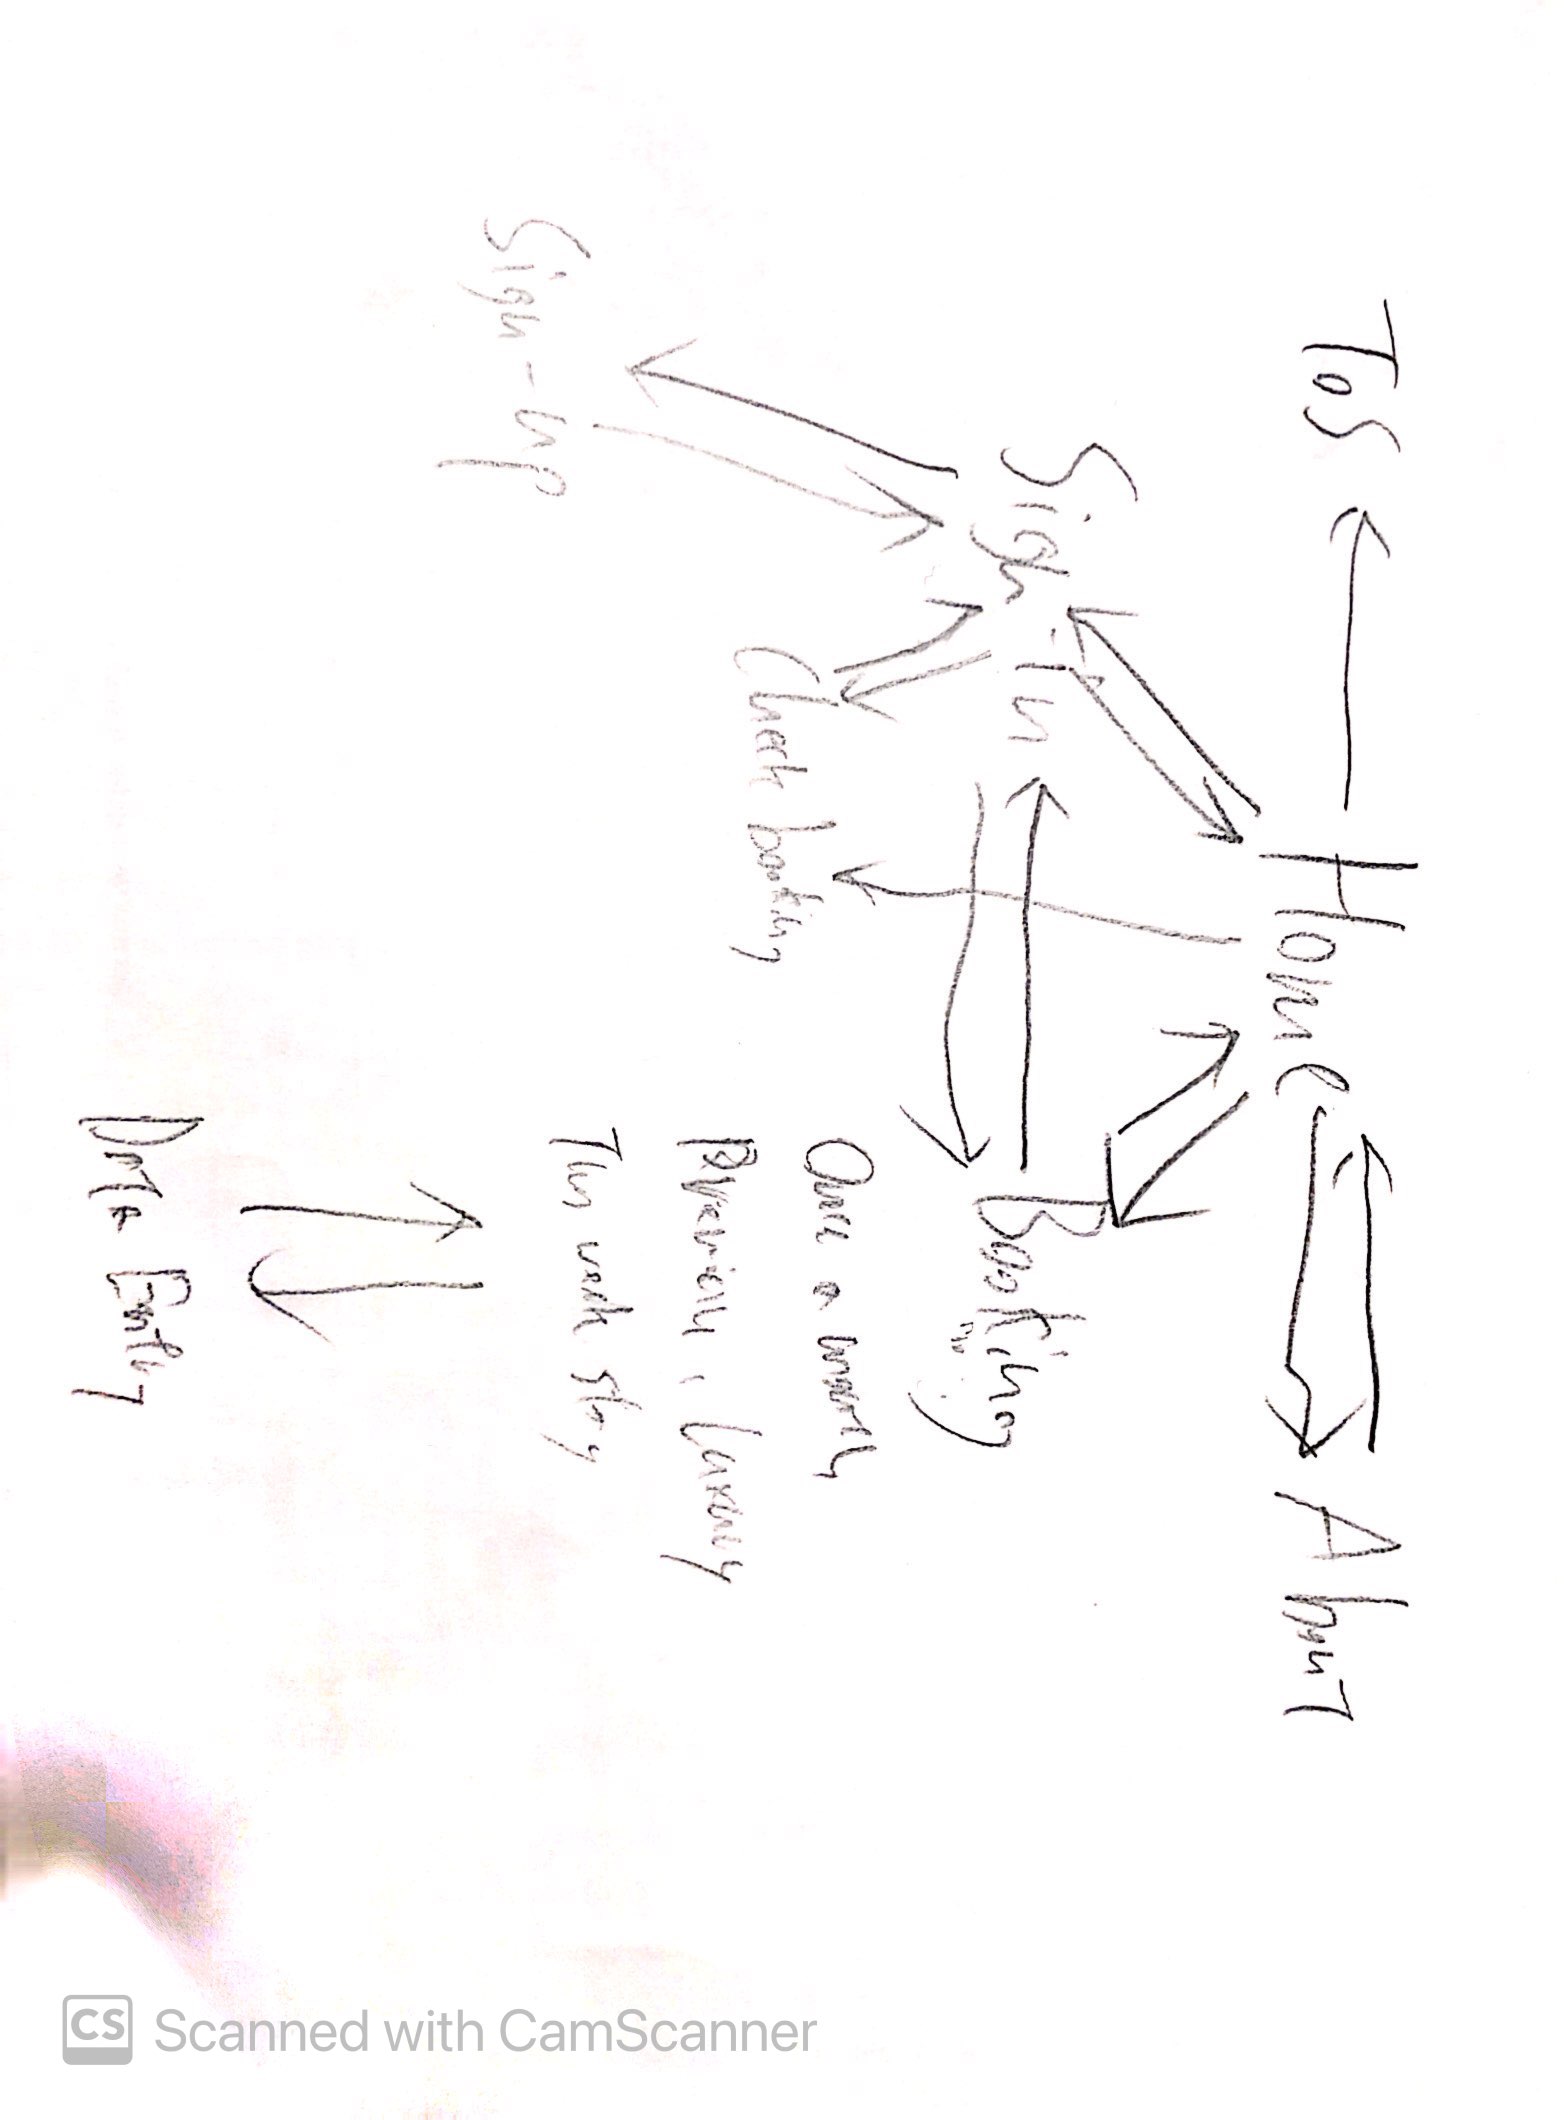 ToS
Home
About
Sign in
Booking
Check booking
Sign-up
Once a month
Premium, Luxury
stay
Data Entry
CS Scanned with CamScanner